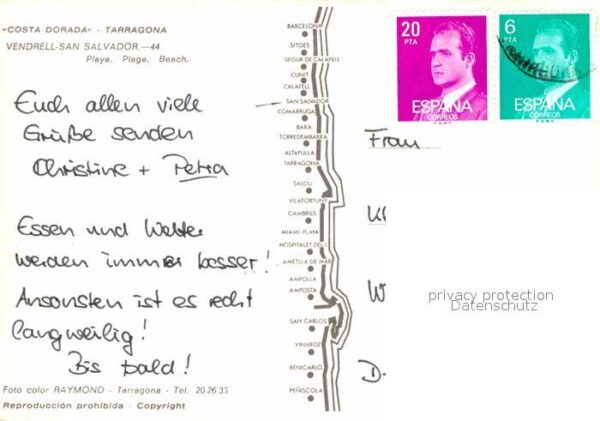 «COSTA DORADA» - TARRAGONA
VENDRELL-SAN SALVADOR.—44
Playa. Plage. Beach.
Euch allen viele
Grüße senden
Christine + Petra
Essen und Wetter
werden immer besser!
Ansonsten ist es recht
langweilig!
Bis bald!
Foto color RAYMOND - Tarragona - Tel. 20-26-35
Reproducción prohibida - Copyright
BARCELONA
SITGES
SEGUR DE CALAFELL
CUNIT
CALAFELL
SAN SALVADOR
COMARRUGA
BARA
TORREDEMBARRA
ALTAFULLA
TARRAGONA
SALOU
VILAFORTUNY
CAMBRILS
MIAMI-PLAYA
HOSPITALET DEL I.
AMETLLA DE MAR
AMPOLLA
AMPOSTA
SAN CARLOS
VINAROZ
BENICARLO
PEÑISCOLA
20
PTA
ESPAÑA
CORREOS
6
PTA
ESPAÑA
CORREOS
Frau
W
privacy protection
Datenschutz
D-